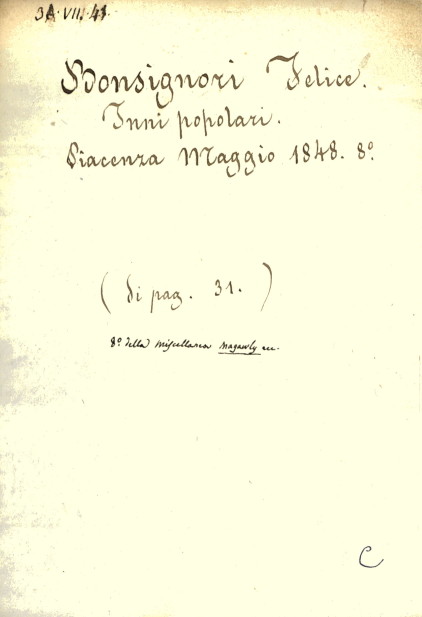 3A·VII·41·
Bonsignori Felice.
Inni popolari.
Piacenza Maggio 1848. 8º.
( di pag. 31. )
8º della miscellanea
C